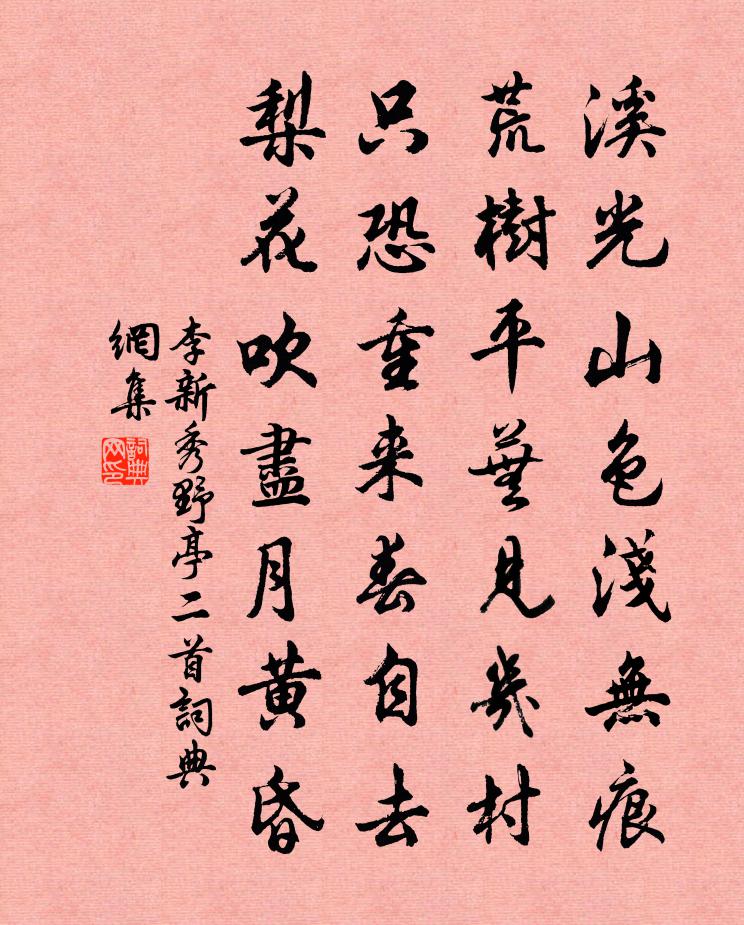 溪光山色淺無痕
荒樹平蕪見幾村
只恐重来春自去
梨花吹盡月黄昏
李新秀野亭二首詞典
網集
詞典
网印